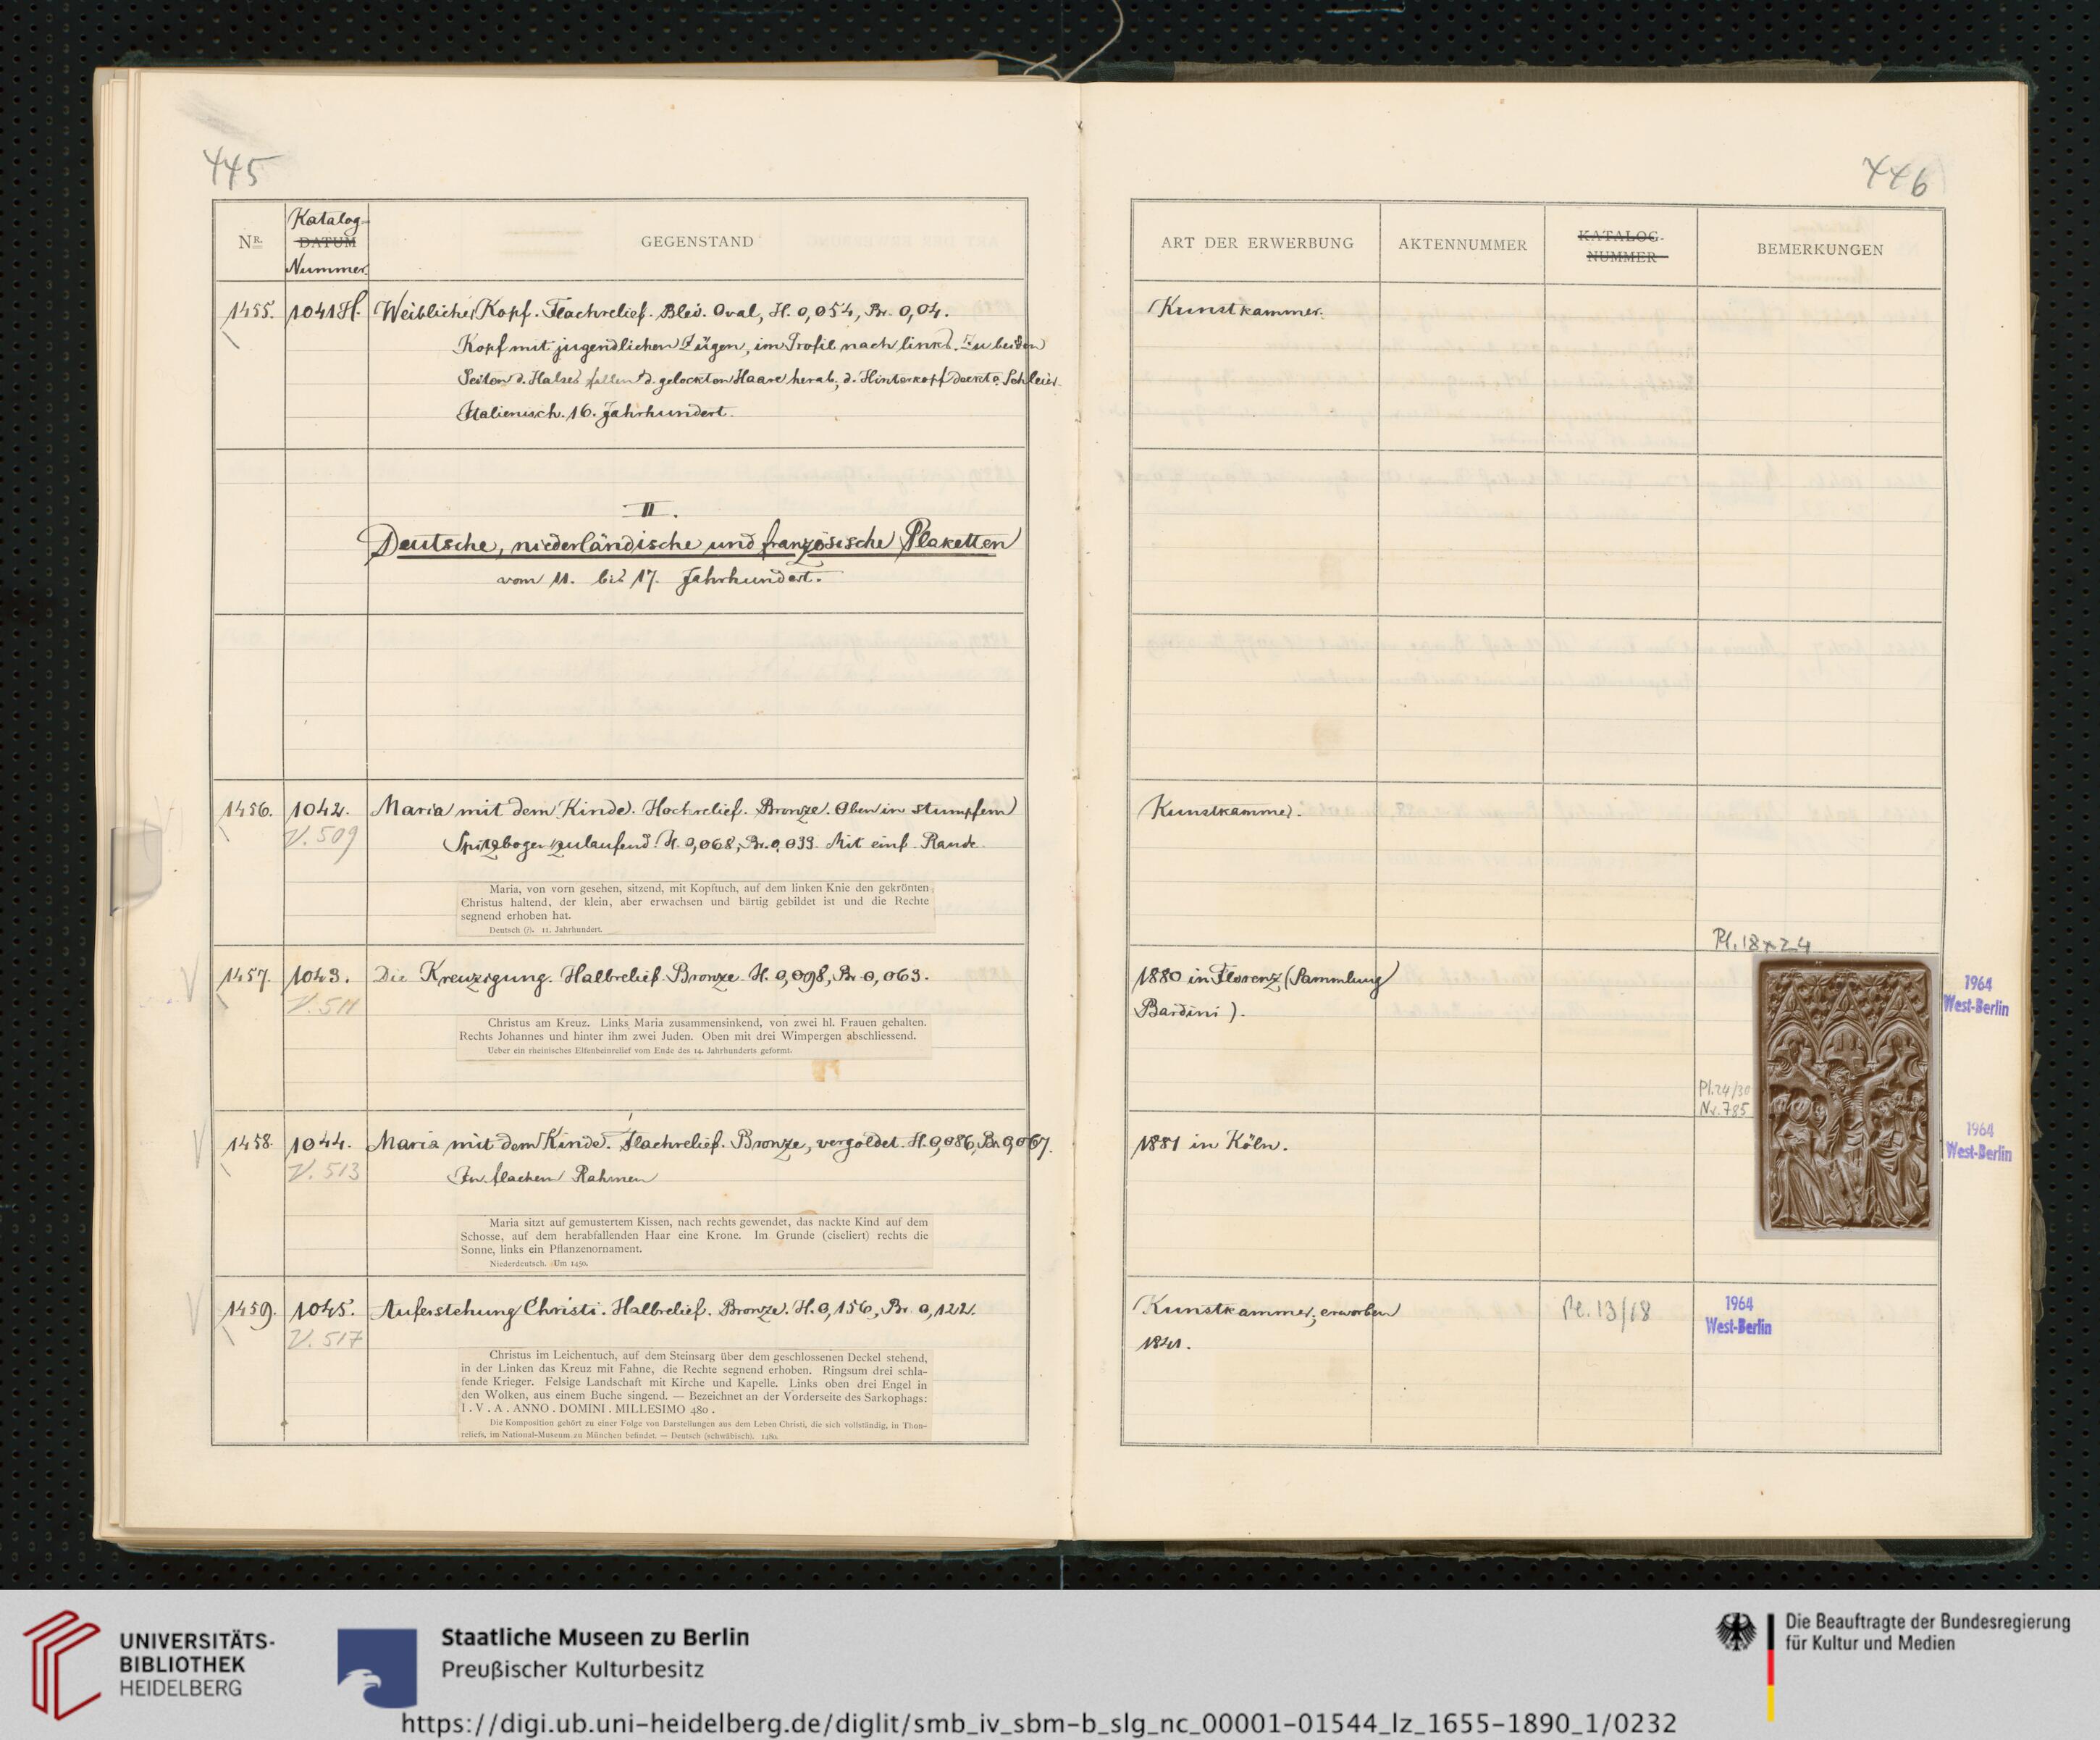 445
Nr.
Katalog-
DATUM
Nummer.
GEGENSTAND
1455.
1041 H.
Weiblicher Kopf. Flachrelief. Blei. Oval, H. 0,054, Br. 0,04.
Kopf mit jugendlichen Zügen, im Profil nach links. Zu beiden
Seiten d. Halses fallen d. gelockten Haare herab; d. Hinterkopf deckt e. Schleier.
Italienisch. 16. Jahrhundert.
II.
Deutsche, niederländische und französische Plaketten
vom 11. bis 17. Jahrhundert.
1456.
1042.
V. 509
Maria mit dem Kinde. Hochrelief. Bronze. Oben in stumpfem
Spitzbogen zulaufend. H. 0,068, Br. 0,039. Mit einf. Rande.
Maria, von vorn gesehen, sitzend, mit Kopftuch, auf dem linken Knie den gekrönten
Christus haltend, der klein, aber erwachsen und bärtig gebildet ist und die Rechte
segnend erhoben hat.
Deutsch (?). 11. Jahrhundert.
1457.
1043.
V. 511
Die Kreuzigung. Halbrelief. Bronze. H. 0,098, Br. 0,063.
Christus am Kreuz. Links Maria zusammensinkend, von zwei hl. Frauen gehalten.
Rechts Johannes und hinter ihm zwei Juden. Oben mit drei Wimpergen abschliessend.
Ueber ein rheinisches Elfenbeinrelief vom Ende des 14. Jahrhunderts geformt.
1458.
1044.
V. 513
Maria mit dem Kinde. Flachrelief. Bronze, vergoldet. H. 0,086, Br. 0,067.
In flachem Rahmen
Maria sitzt auf gemustertem Kissen, nach rechts gewendet, das nackte Kind auf dem
Schosse, auf dem herabfallenden Haar eine Krone. Im Grunde (ciseliert) rechts die
Sonne, links ein Pflanzenornament.
Niederdeutsch. Um 1450.
1459.
1045.
V. 517
Auferstehung Christi. Halbrelief. Bronze. H. 0,156, Br. 0,122.
Christus im Leichentuch, auf dem Steinsarg über dem geschlossenen Deckel stehend,
in der Linken das Kreuz mit Fahne, die Rechte segnend erhoben. Ringsum drei schla-
fende Krieger. Felsige Landschaft mit Kirche und Kapelle. Links oben drei Engel in
den Wolken, aus einem Buche singend. — Bezeichnet an der Vorderseite des Sarkophags:
I . V . A . ANNO . DOMINI . MILLESIMO 480 .
Die Komposition gehört zu einer Folge von Darstellungen aus dem Leben Christi, die sich vollständig, in Thon-
reliefs, im National-Museum zu München befindet. — Deutsch (schwäbisch). 1480.
446
ART DER ERWERBUNG
AKTENNUMMER
KATALOG-
NUMMER
BEMERKUNGEN
Kunstkammer.
Kunstkammer.
Pl. 18x24
1880 in Florenz (Sammlung
Bardini).
1964
West-Berlin
Pl. 24/30
Nr. 785
1881 in Köln.
1964
West-Berlin
Kunstkammer, erworben
1841.
Pl. 13/18
1964
West-Berlin
UNIVERSITÄTS-
BIBLIOTHEK
HEIDELBERG
Staatliche Museen zu Berlin
Preußischer Kulturbesitz
Die Beauftragte der Bundesregierung
für Kultur und Medien
https://digi.ub.uni-heidelberg.de/diglit/smb_iv_sbm-b_slg_nc_00001-01544_lz_1655-1890_1/0232